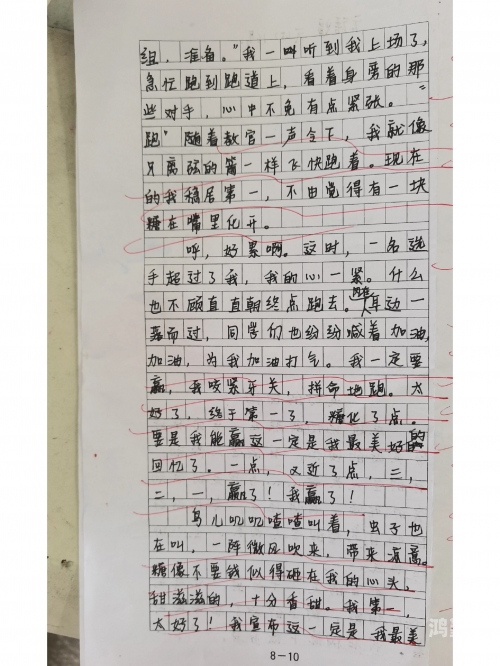 组,准备。"我一叫听到我上场了,
急忙跑到跑道上,看着身旁的那
些对手,心中不免有点紧张。"
跑"随着教官一声令下,我就像
只离弦的箭一样飞快跑着。现在
的我稳居第一,不由觉得有一块
糖在嘴里化开。
呼,好累啊。这时,一名选
手超过了我,我的心一紧。什么
也不顾直直朝终点跑去。风在耳边一
而过,同学们也纷纷喊着加油,
加油,为我加油打气。我一定要
赢,我咬紧牙关,拼命地跑。太
好了,终于第一了,糖化了点。
要是我能赢这一定是我最美好的
回忆了。一点,又近了点,三,
二,一,赢了!我赢了!
鸟儿叽叽喳喳叫着,虫子也
在叫,一阵微风吹来,带来凉意。
糖像不要钱似得砸在我的心头,
甜滋滋的,十分香甜。我第一,
太好了!我宣布这一定是我最美
8-10